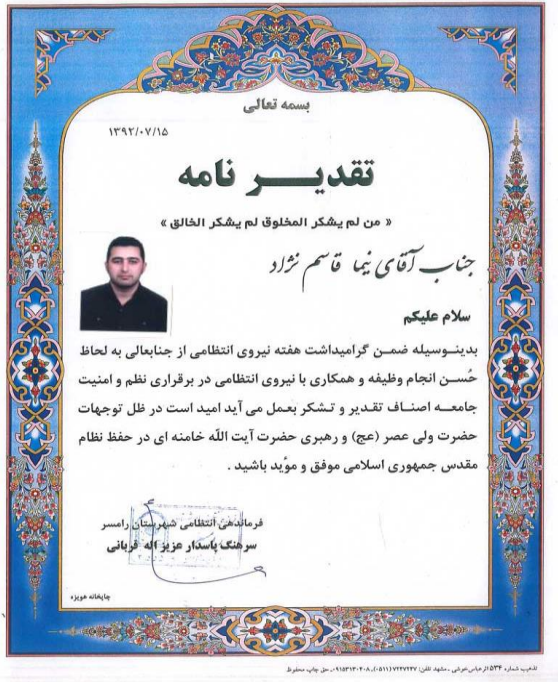 بسمه تعالی
۱۳۹۲/۰۷/۱۵
تقدیـــر نامه
« من لم یشکر المخلوق لم یشکر الخالق »
جناب آقای نیما قاسم نژاد
سلام علیکم
بدینـوسیله ضمـن گرامیداشت هفته نیروی انتظامی از جنابعالی به لحاظ
حُسـن انجام وظیفه و همکاری با نیروی انتظامی در برقراری نظم و امنیت
جامعـه اصنـاف تقدیر و تـشکر بعمل می آید امید است در ظل توجهات
حضرت ولی عصر (عج) و رهبری حضرت آیت اللّه خامنه ای در حفظ نظام
مقدس جمهوری اسلامی موفق و مؤید باشید .
فرماندهی انتظامی شهرستان رامسر
سرهنگ پاسدار عزیز اله قربانی
چاپخانه هویزه
تذهیب شماره ۵۳۴ اثر عباس خوشی ـ مشهد تلفن: ۷۲۴۷۲۴۷ (۰۵۱۱)ـ ۰۹۱۵۳۱۳۰۴۰۸ـ حق چاپ محفوظ